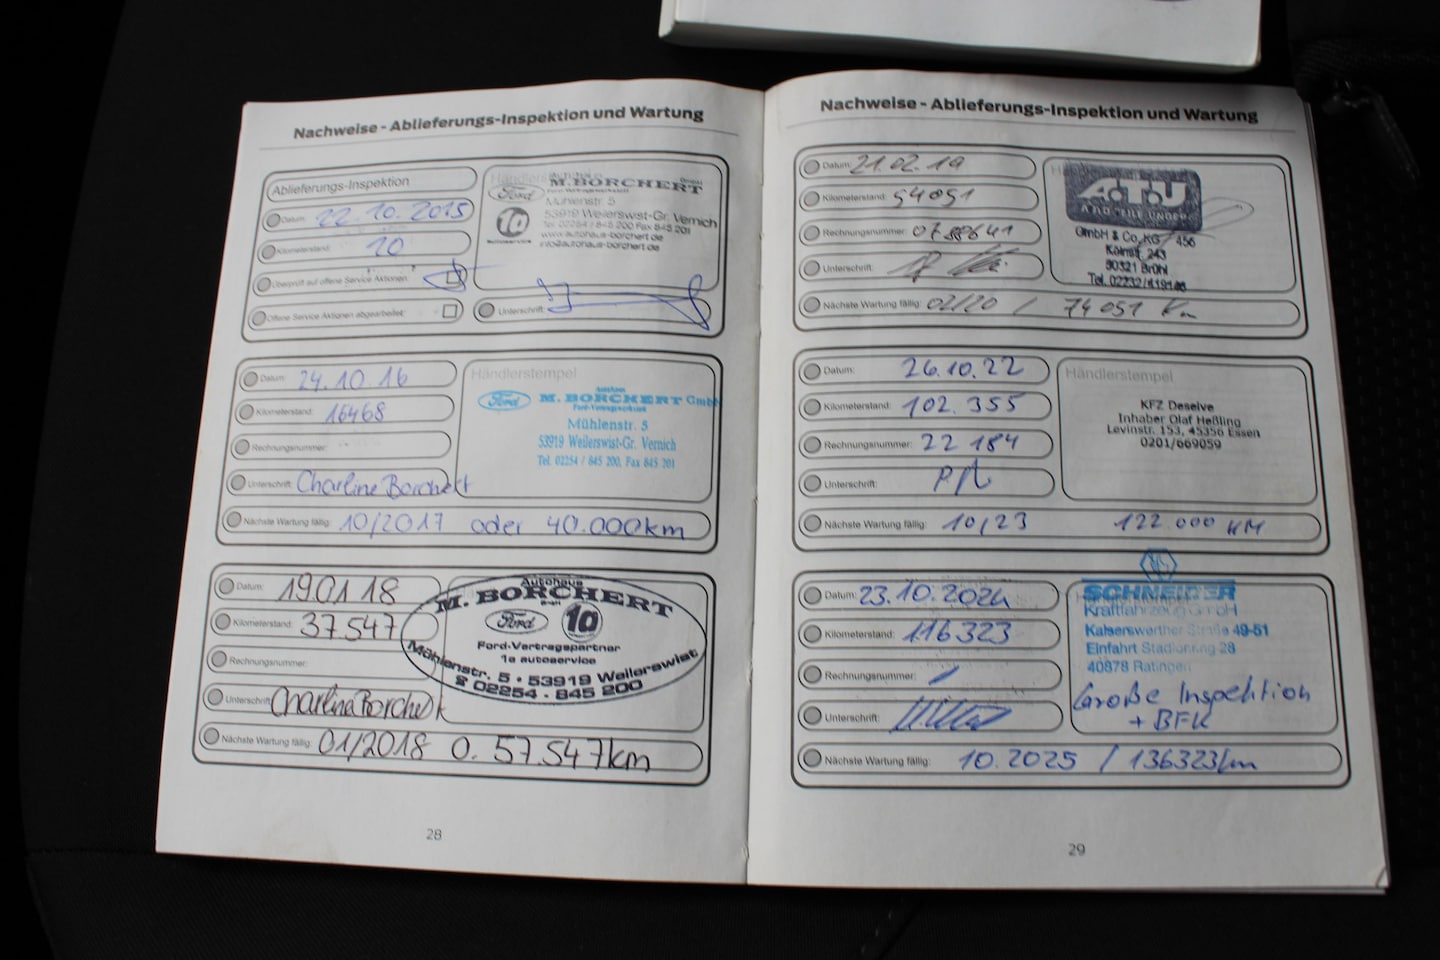 Nachweise - Ablieferungs-Inspektion und Wartung
Ablieferungs-Inspektion
Datum: 22.10.2015
Kilometerstand: 10
Überprüft auf offene Service Aktionen:
Offene Service Aktionen abgearbeitet:
Händlerstempel
Ford M. BORCHERT GmbH
Ford-Vertragspartner
Mühlenstr. 5
53919 Weilerswist-Gr. Vernich
Tel. 02254 / 845 200 Fax 845 201
www.autohaus-borchert.de
info@autohaus-borchert.de
1a autoservice
Unterschrift:
Datum: 24.10.16
Kilometerstand: 16468
Rechnungsnummer:
Unterschrift: Charline Borchert
Nächste Wartung fällig: 10/2017 oder 40.000km
Händlerstempel
Autohaus
Ford M. BORCHERT GmbH
Ford-Vertragspartner
Mühlenstr. 5
53919 Weilerswist-Gr. Vernich
Tel. 02254 / 845 200, Fax 845 201
Datum: 19.01.18
Kilometerstand: 37.547
Rechnungsnummer:
Unterschrift: Charline Borchert
Nächste Wartung fällig: 01/2018 o. 57.547km
Autohaus
M. BORCHERT
GmbH
Ford 1a
Ford-Vertragspartner
1a autoservice
Mühlenstr. 5 • 53919 Weilerswist
☎ 02254 - 845 200
28
Nachweise - Ablieferungs-Inspektion und Wartung
Datum: 21.02.19
Kilometerstand: 54051
Rechnungsnummer:
Unterschrift:
Nächste Wartung fällig: 02/20 / 74051 Km
A.T.U
AUTO TEILE UNGER
GmbH & Co. KG 456
Kölnstr. 243
50321 Brühl
Datum: 26.10.22
Kilometerstand: 102.355
Rechnungsnummer: 22 184
Unterschrift:
Nächste Wartung fällig: 10/23 122.000 KM
Händlerstempel
KFZ Deselve
Inhaber Olaf Heßling
Levinstr. 153, 45356 Essen
0201/669059
Datum: 23.10.2024
Kilometerstand: 116323
Rechnungsnummer: /
Unterschrift:
Nächste Wartung fällig: 10.2025 / 136323km
SCHNEIDER
Kraftfahrzeug GmbH
Kaiserswerther Straße 49-51
Einfahrt Stadionring 28
40878 Ratingen
Große Inspektion
+ BFK
29